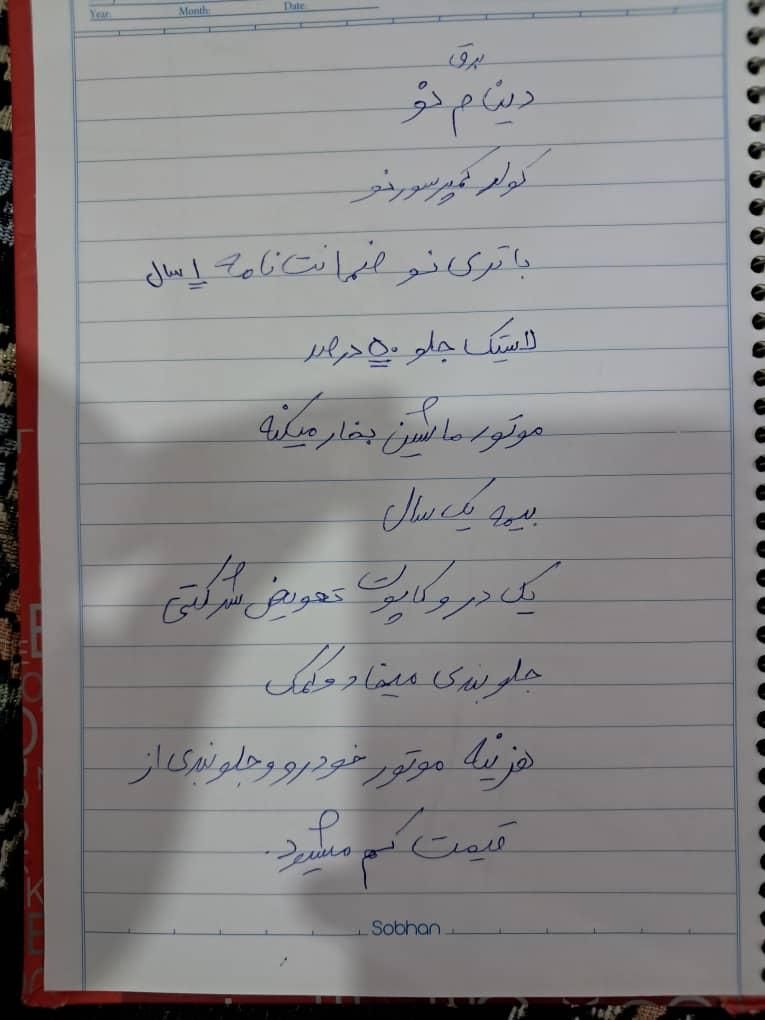 Year: Month: Date:
برق
دینام نو
کولر کمپرسور نو
باتری نو ضمانت نامه ۱ سال
لاستیک جلو ۵۰ درصد
موتور ماشین بخار میکنه
بیمه یک سال
یک در و کاپوت تعویض شرکتی
جلوبندی میفاد و کمک
هزینه موتور خودرو و جلو بندی از
قیمت کم میشود.
Sobhan